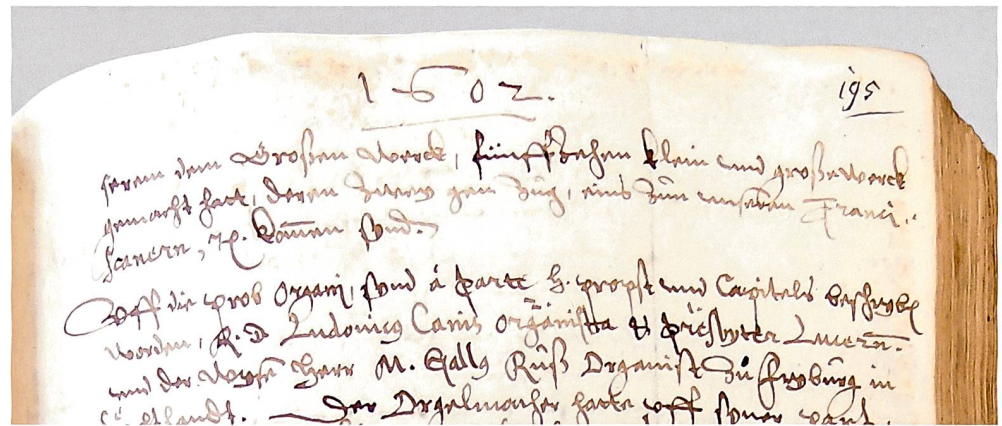 1602.
195
serem dem Großen werck, fünffzehen klein und große werck
gemacht hatt, deren zwey gen Zug, eins zun unseren Franci-
scanern, etc. komen synd.
Uff die prob Organi, synd à parte h. propst und Capitels beschryben
worden, R. D. Ludovicus Canis organista et presbyter Lucern.
und der wyse Herr M. Gallus Rüß Organist zu Fryburg in
Der Orgelmacher hatte uff syner part